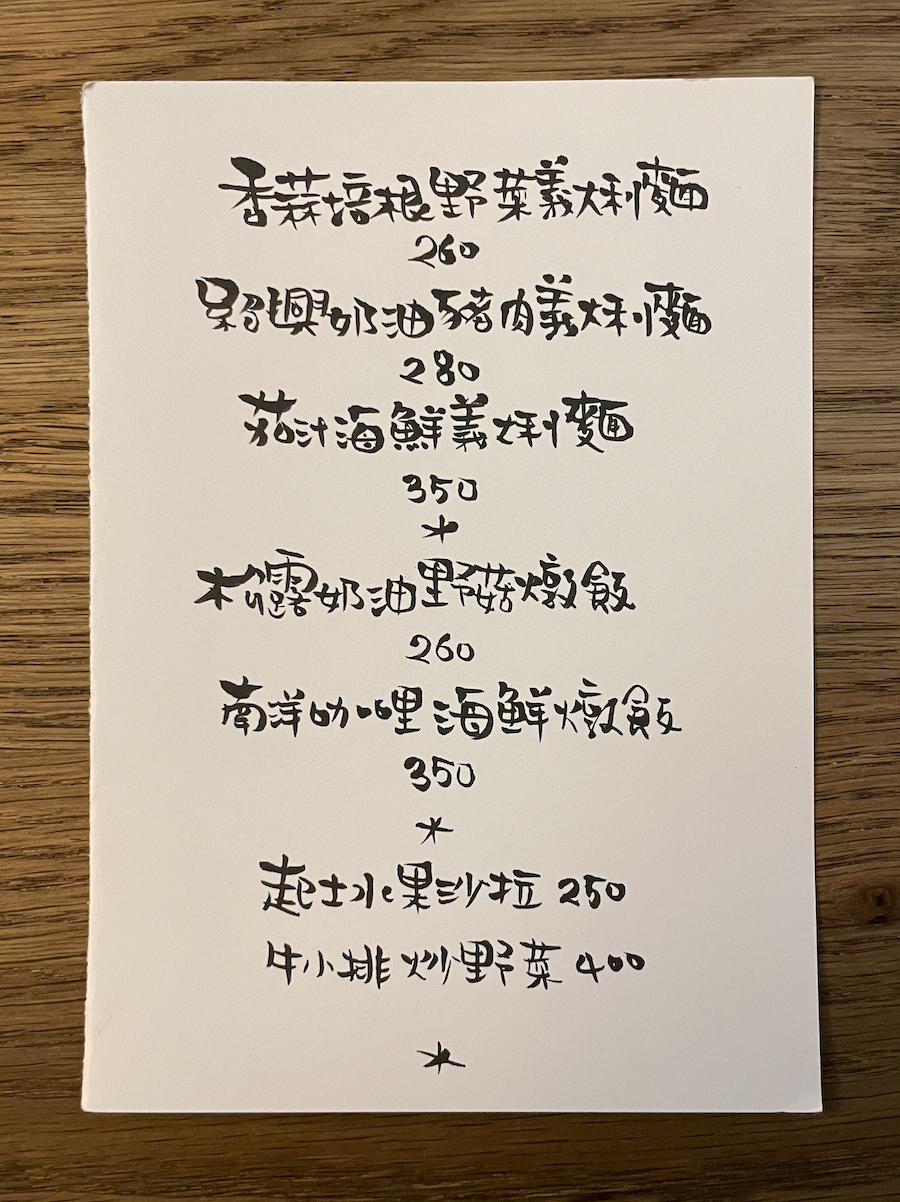 香蒜培根野菜義大利麵
260
紹興奶油豬肉義大利麵
280
茄汁海鮮義大利麵
350
*
松露奶油野菇燉飯
260
南洋咖哩海鮮燉飯
350
*
起士水果沙拉 250
牛小排炒野菜 400
*